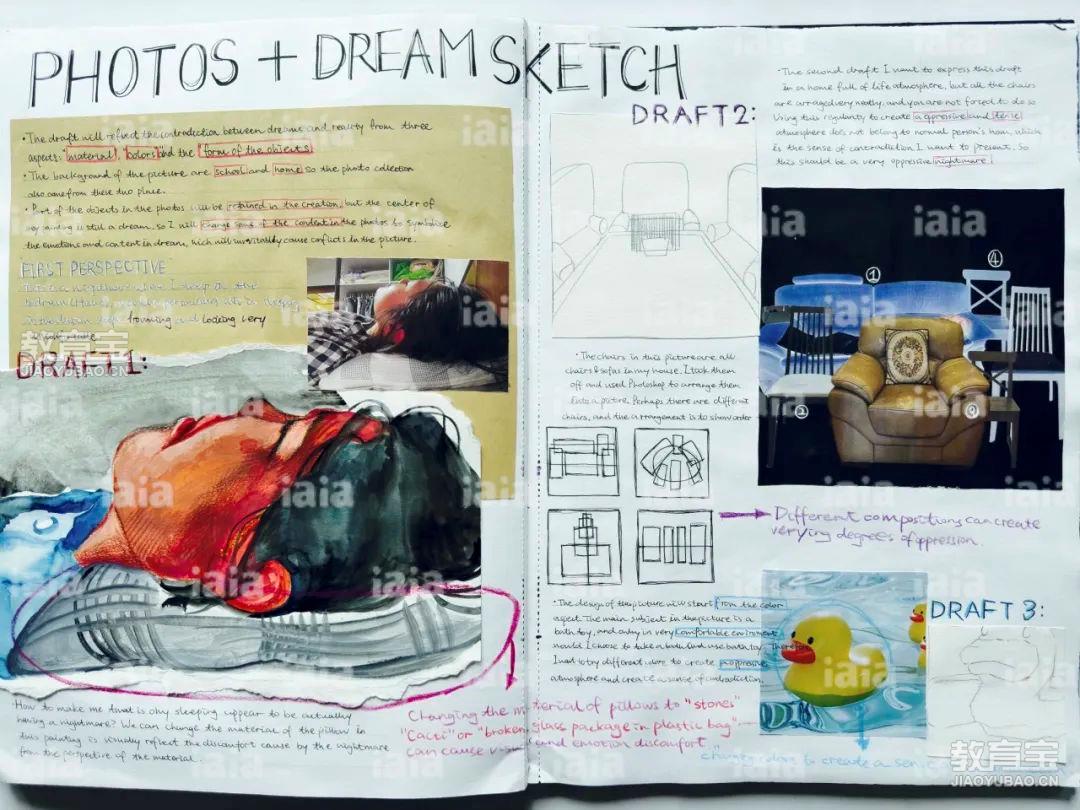 PHOTOS + DREAM SKETCH
· The draft will reflect the contradiction between dreams and reality from three
aspects: "material", "colors" and the "form of the objects".
· The background of the picture are school and home so the photo collection
also came from these two place.
· Part of the objects in the photos will be retained in the creation, but the center of
my painting is still a dream. So I will change some of the content in the photos to symbolise
the emotions and content in dream, hich will inevitably cause conflicts in the picture.
FIRST PERSPECTIVE
This is a nightmare where I sleep in the
frowning and looking very
DRAFT 1:
How to make me that is only sleeping appear to be actually
having a nightmare? We can change the material of the pillow in
this painting is visually reflect the discomfort cause by the nightmare
from the perspective of the material.
Changing the material of pillows to "stones"
"Cacti" or "broken glass package in plastic bag"
can cause and emotion discomfort.
DRAFT 2:
· The second draft I want to express this draft
in a home full of life atmosphere, but all the chairs
are arraged very neatly, and you are not forced to do so
Using this regularity to create a opressive and tense
atmosphere does not belong to normal person's hom, which
is the sense of contradiction I want to present. So
this should be a very oppressive nightmare.
· The chairs in this picture are all
chairs & sofas in my house. I took them
off and used Photoshop to arrange them
into a picture. Perhaps there are different
chairs, and the arrangement is to show order
① ④
② ③
Different compositions can create
verying degrees of oppression.
· The design of the picture will start from the color
aspect. The main subject in the picture is a
bath toy, and only in very komfortable environment
would I choose to take a bath and use bath toy. Therefore
I want to try different color to create oppressive
atmosphere and create a sense of contradiction.
DRAFT 3:
changing colors to create a sense
教育宝
JIAOYUBAO.CN
教育宝
JIAOYUBAO.CN
iaia